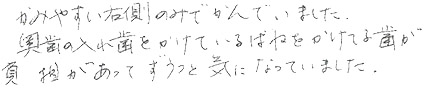 かみやすい右側のみでかんでいました。
奥歯の入れ歯をかけているばねをかけてる歯が
負担があってずうっと気になっていました。